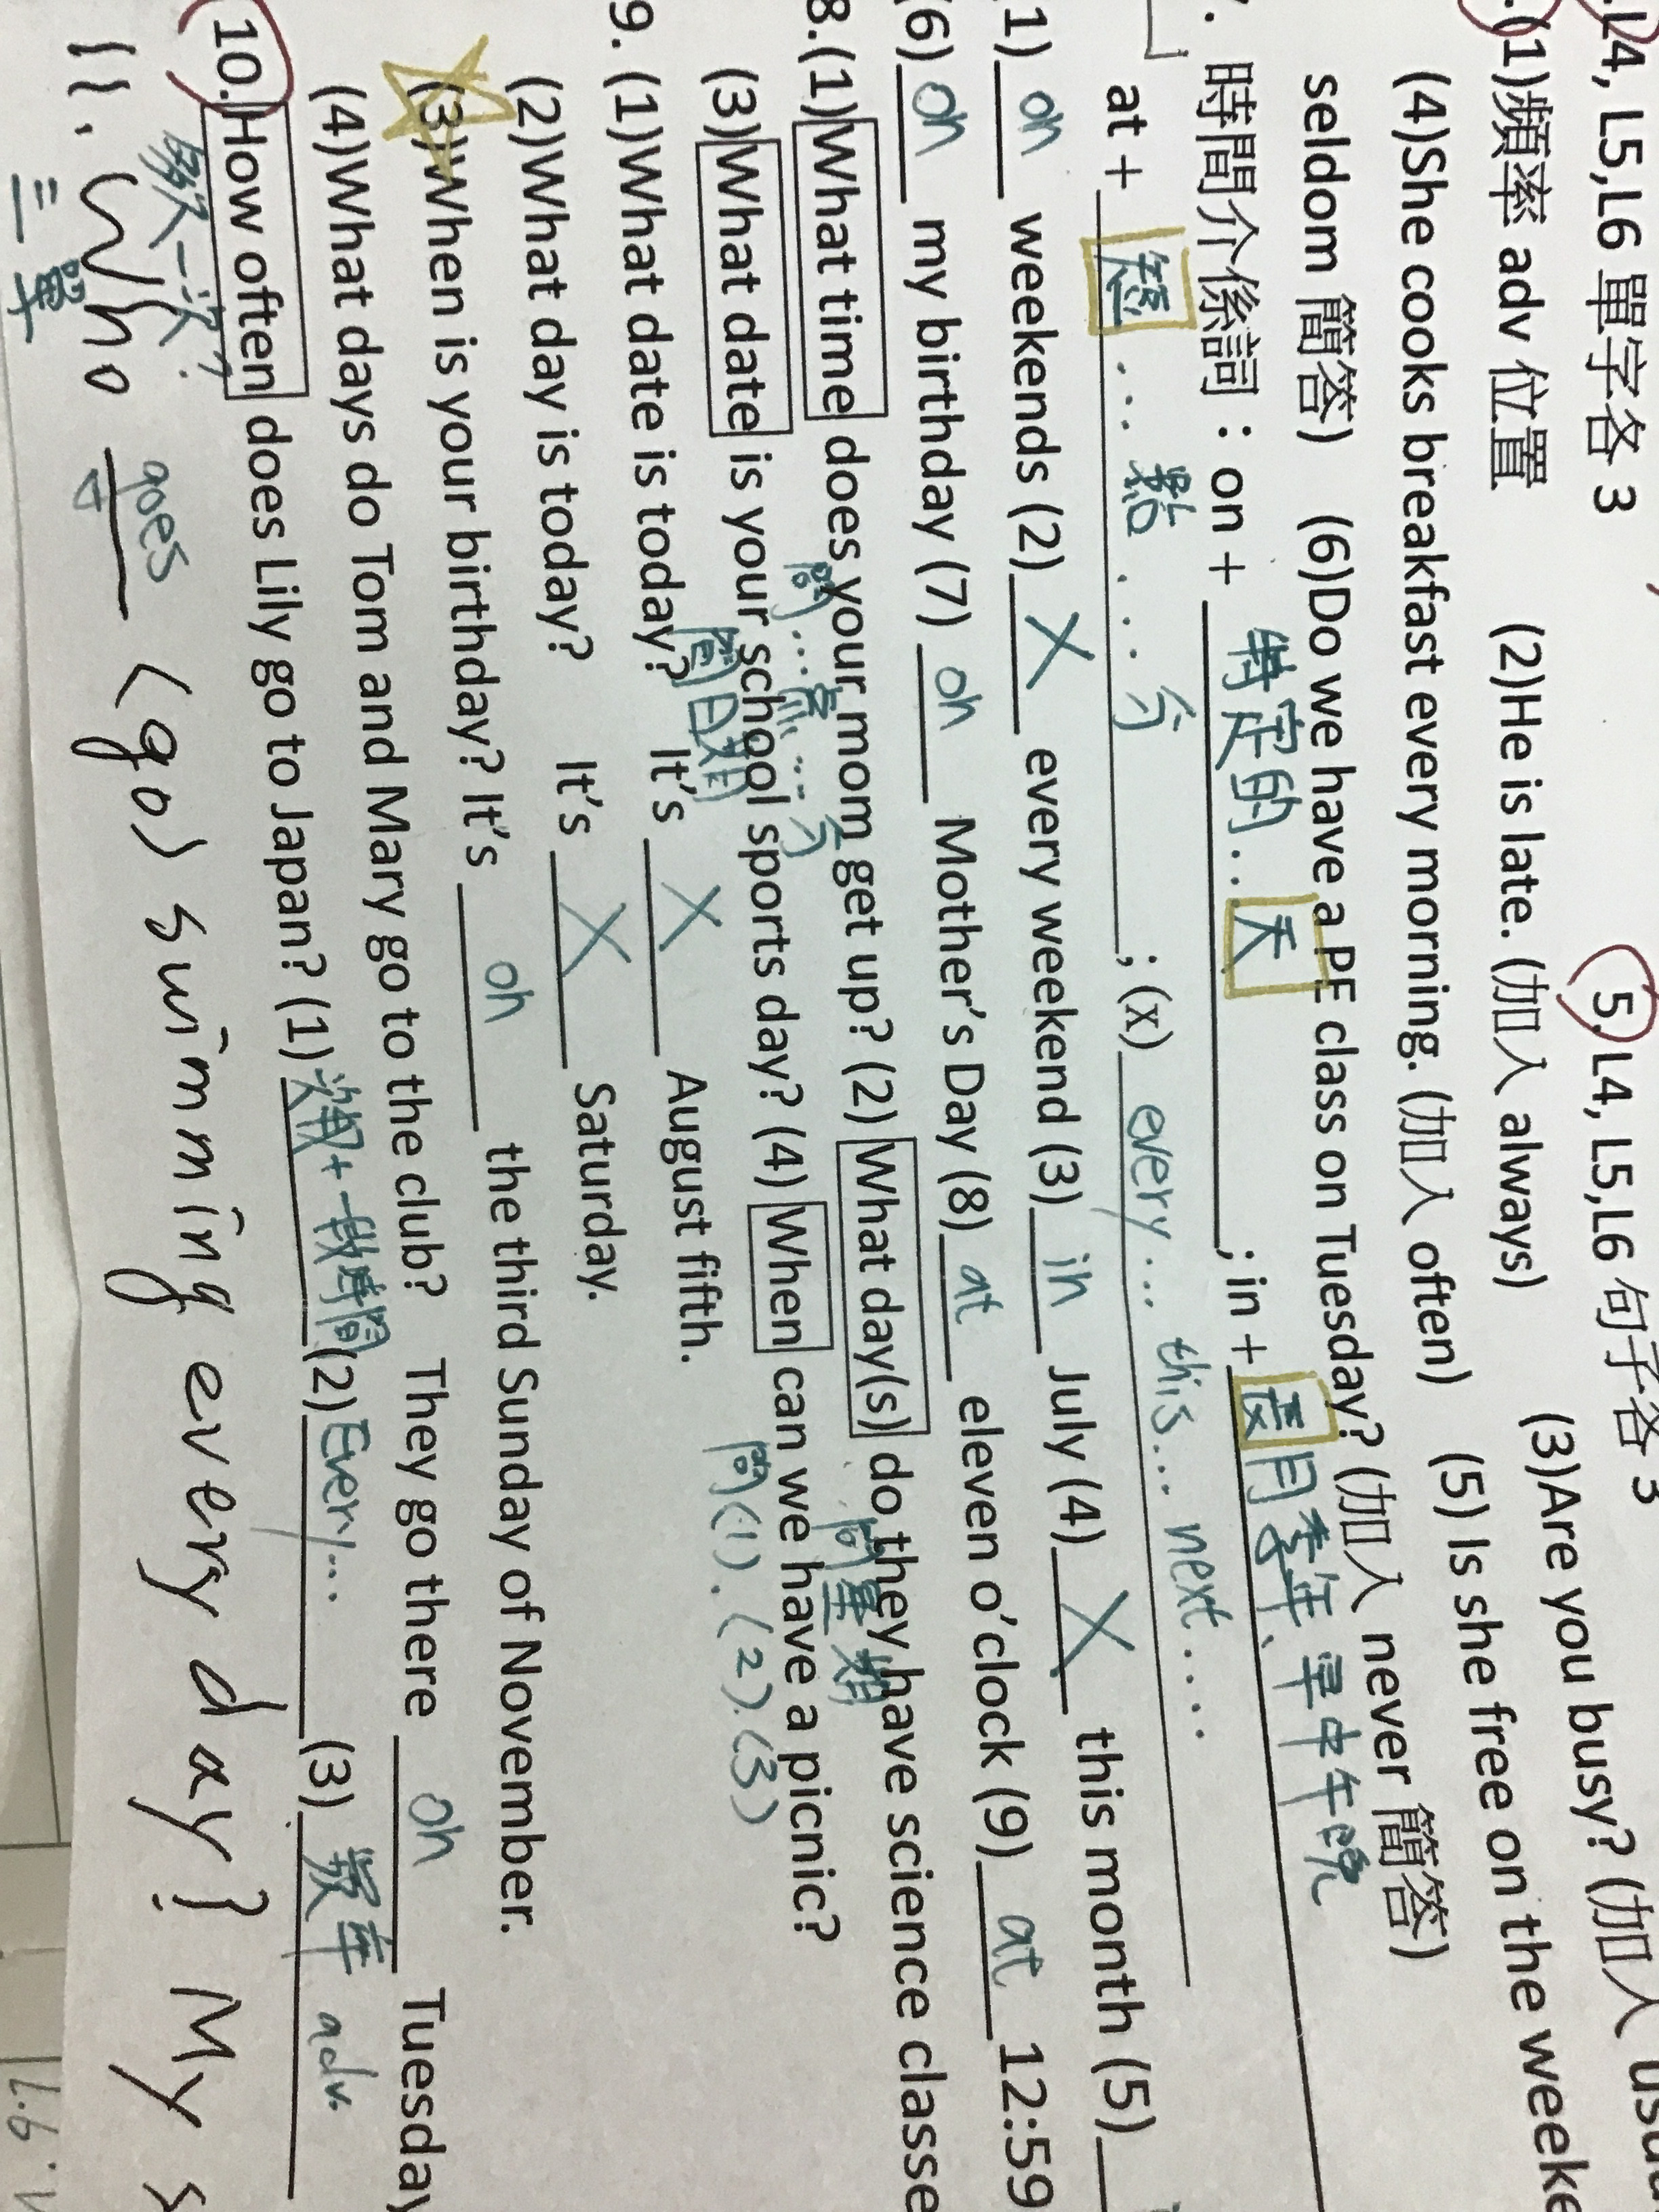 L4, L5,L6 單字各 3 5. L4, L5,L6 句子各 3
(1)頻率 adv 位置 (2)He is late. (加入 always) (3)Are you busy? (加入
(4)She cooks breakfast every morning. (加入 often) (5) Is she free on the weeke
seldom 簡答) (6)Do we have a PE class on Tuesday? (加入 never 簡答)
時間介係詞：on + 特定的...天 ; in + 月季年、早中午晚
at + ...點...分 ; (x) every... this... next....
1) on weekends (2) X every weekend (3) in July (4) X this month (5)
(6) on my birthday (7) on Mother's Day (8) at eleven o'clock (9) at 12:59
8.(1)What time does your mom get up? (2) What day(s) do they have science classe
問...點...分 問星期
(3)What date is your school sports day? (4) When can we have a picnic?
問日期 問(1).(2).(3)
9. (1)What date is today? It's X August fifth.
(2)What day is today? It's X Saturday.
(3)When is your birthday? It's on the third Sunday of November.
(4)What days do Tom and Mary go to the club? They go there on Tuesday
10. How often does Lily go to Japan? (1) 次數+一段時間 (2) Every... (3) 頻率 adv.
多久一次?
11. Who goes (go) swimming every day? My s
三單